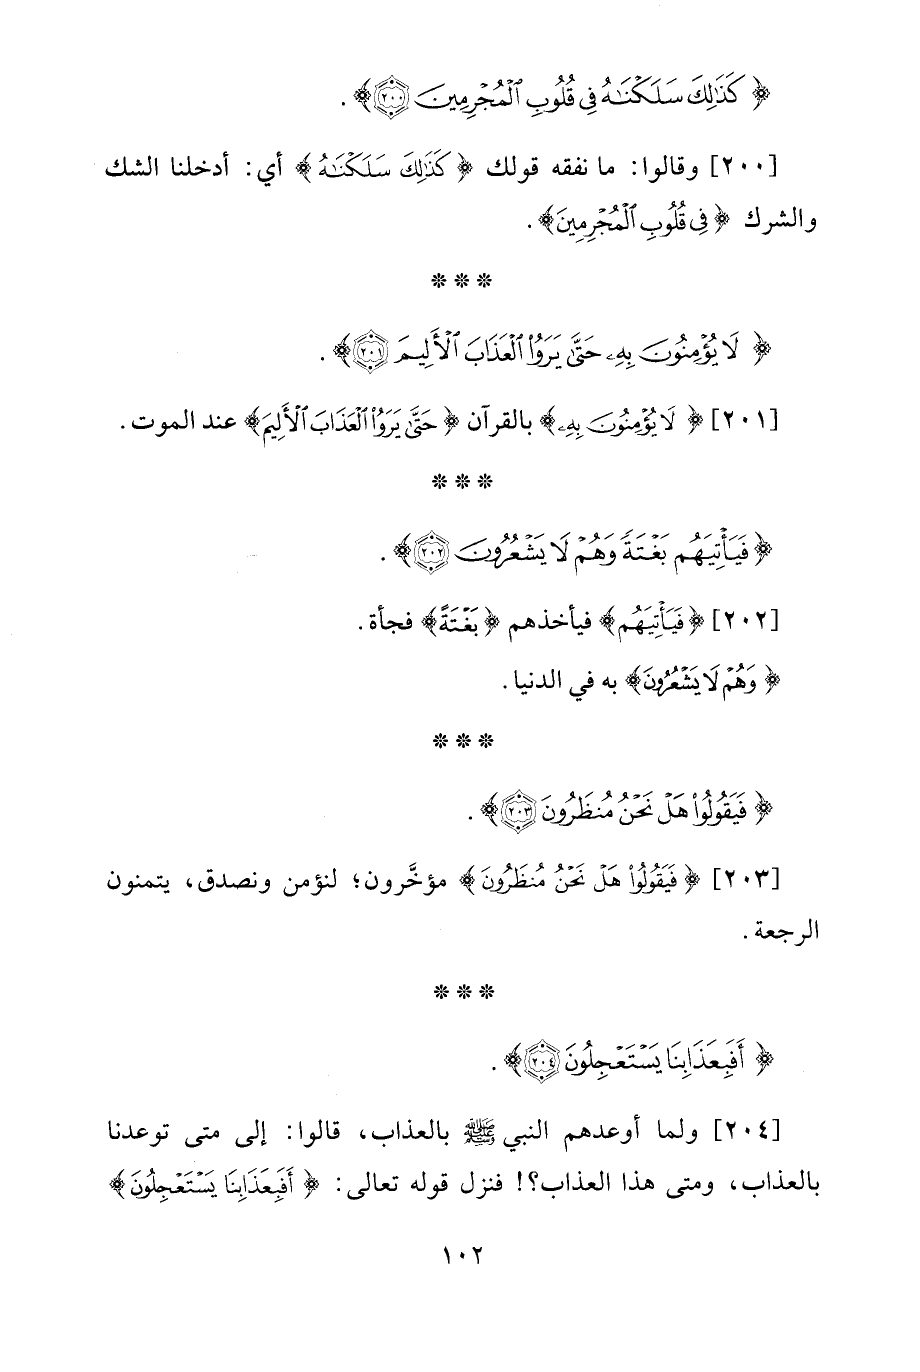 ﴿ كَذَٰلِكَ سَلَكْنَٰهُ فِى قُلُوبِ ٱلْمُجْرِمِينَ ٢٠٠ ﴾ .
[٢٠٠] وقالوا: ما نفقه قولك ﴿ كَذَٰلِكَ سَلَكْنَٰهُ ﴾ أي: أدخلنا الشك
والشرك ﴿ فِى قُلُوبِ ٱلْمُجْرِمِينَ ﴾ .
* * *
﴿ لَا يُؤْمِنُونَ بِهِۦ حَتَّىٰ يَرَوُا۟ ٱلْعَذَابَ ٱلْأَلِيمَ ٢٠١ ﴾ .
[٢٠١] ﴿ لَا يُؤْمِنُونَ بِهِۦ ﴾ بالقرآن ﴿ حَتَّىٰ يَرَوُا۟ ٱلْعَذَابَ ٱلْأَلِيمَ ﴾ عند الموت .
* * *
﴿ فَيَأْتِيَهُم بَغْتَةً وَهُمْ لَا يَشْعُرُونَ ٢٠٢ ﴾ .
[٢٠٢] ﴿ فَيَأْتِيَهُم ﴾ فيأخذهم ﴿ بَغْتَةً ﴾ فجأة .
﴿ وَهُمْ لَا يَشْعُرُونَ ﴾ به في الدنيا .
* * *
﴿ فَيَقُولُوا۟ هَلْ نَحْنُ مُنظَرُونَ ٢٠٣ ﴾ .
[٢٠٣] ﴿ فَيَقُولُوا۟ هَلْ نَحْنُ مُنظَرُونَ ﴾ مؤخَّرون؛ لنؤمن ونصدق، يتمنون
الرجعة .
* * *
﴿ أَفَبِعَذَابِنَا يَسْتَعْجِلُونَ ٢٠٤ ﴾ .
[٢٠٤] ولما أوعدهم النبي ﷺ بالعذاب، قالوا: إلى متى توعدنا
بالعذاب، ومتى هذا العذاب؟! فنزل قوله تعالى: ﴿ أَفَبِعَذَابِنَا يَسْتَعْجِلُونَ ﴾
١٠٢